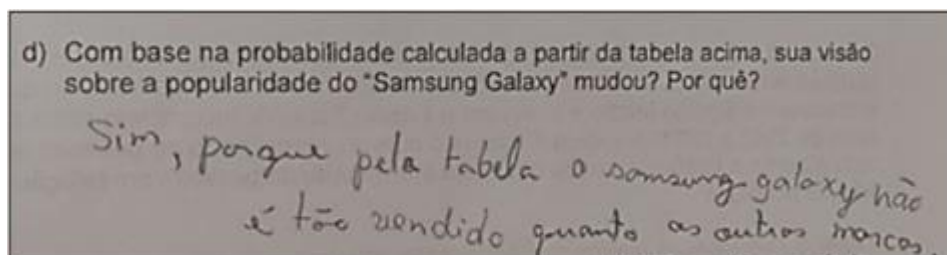 d) Com base na probabilidade calculada a partir da tabela acima, sua visão
sobre a popularidade do "Samsung Galaxy" mudou? Por quê?
Sim, porque pela tabela o samsung galaxy não
é tão vendido quanto as outras marcas.